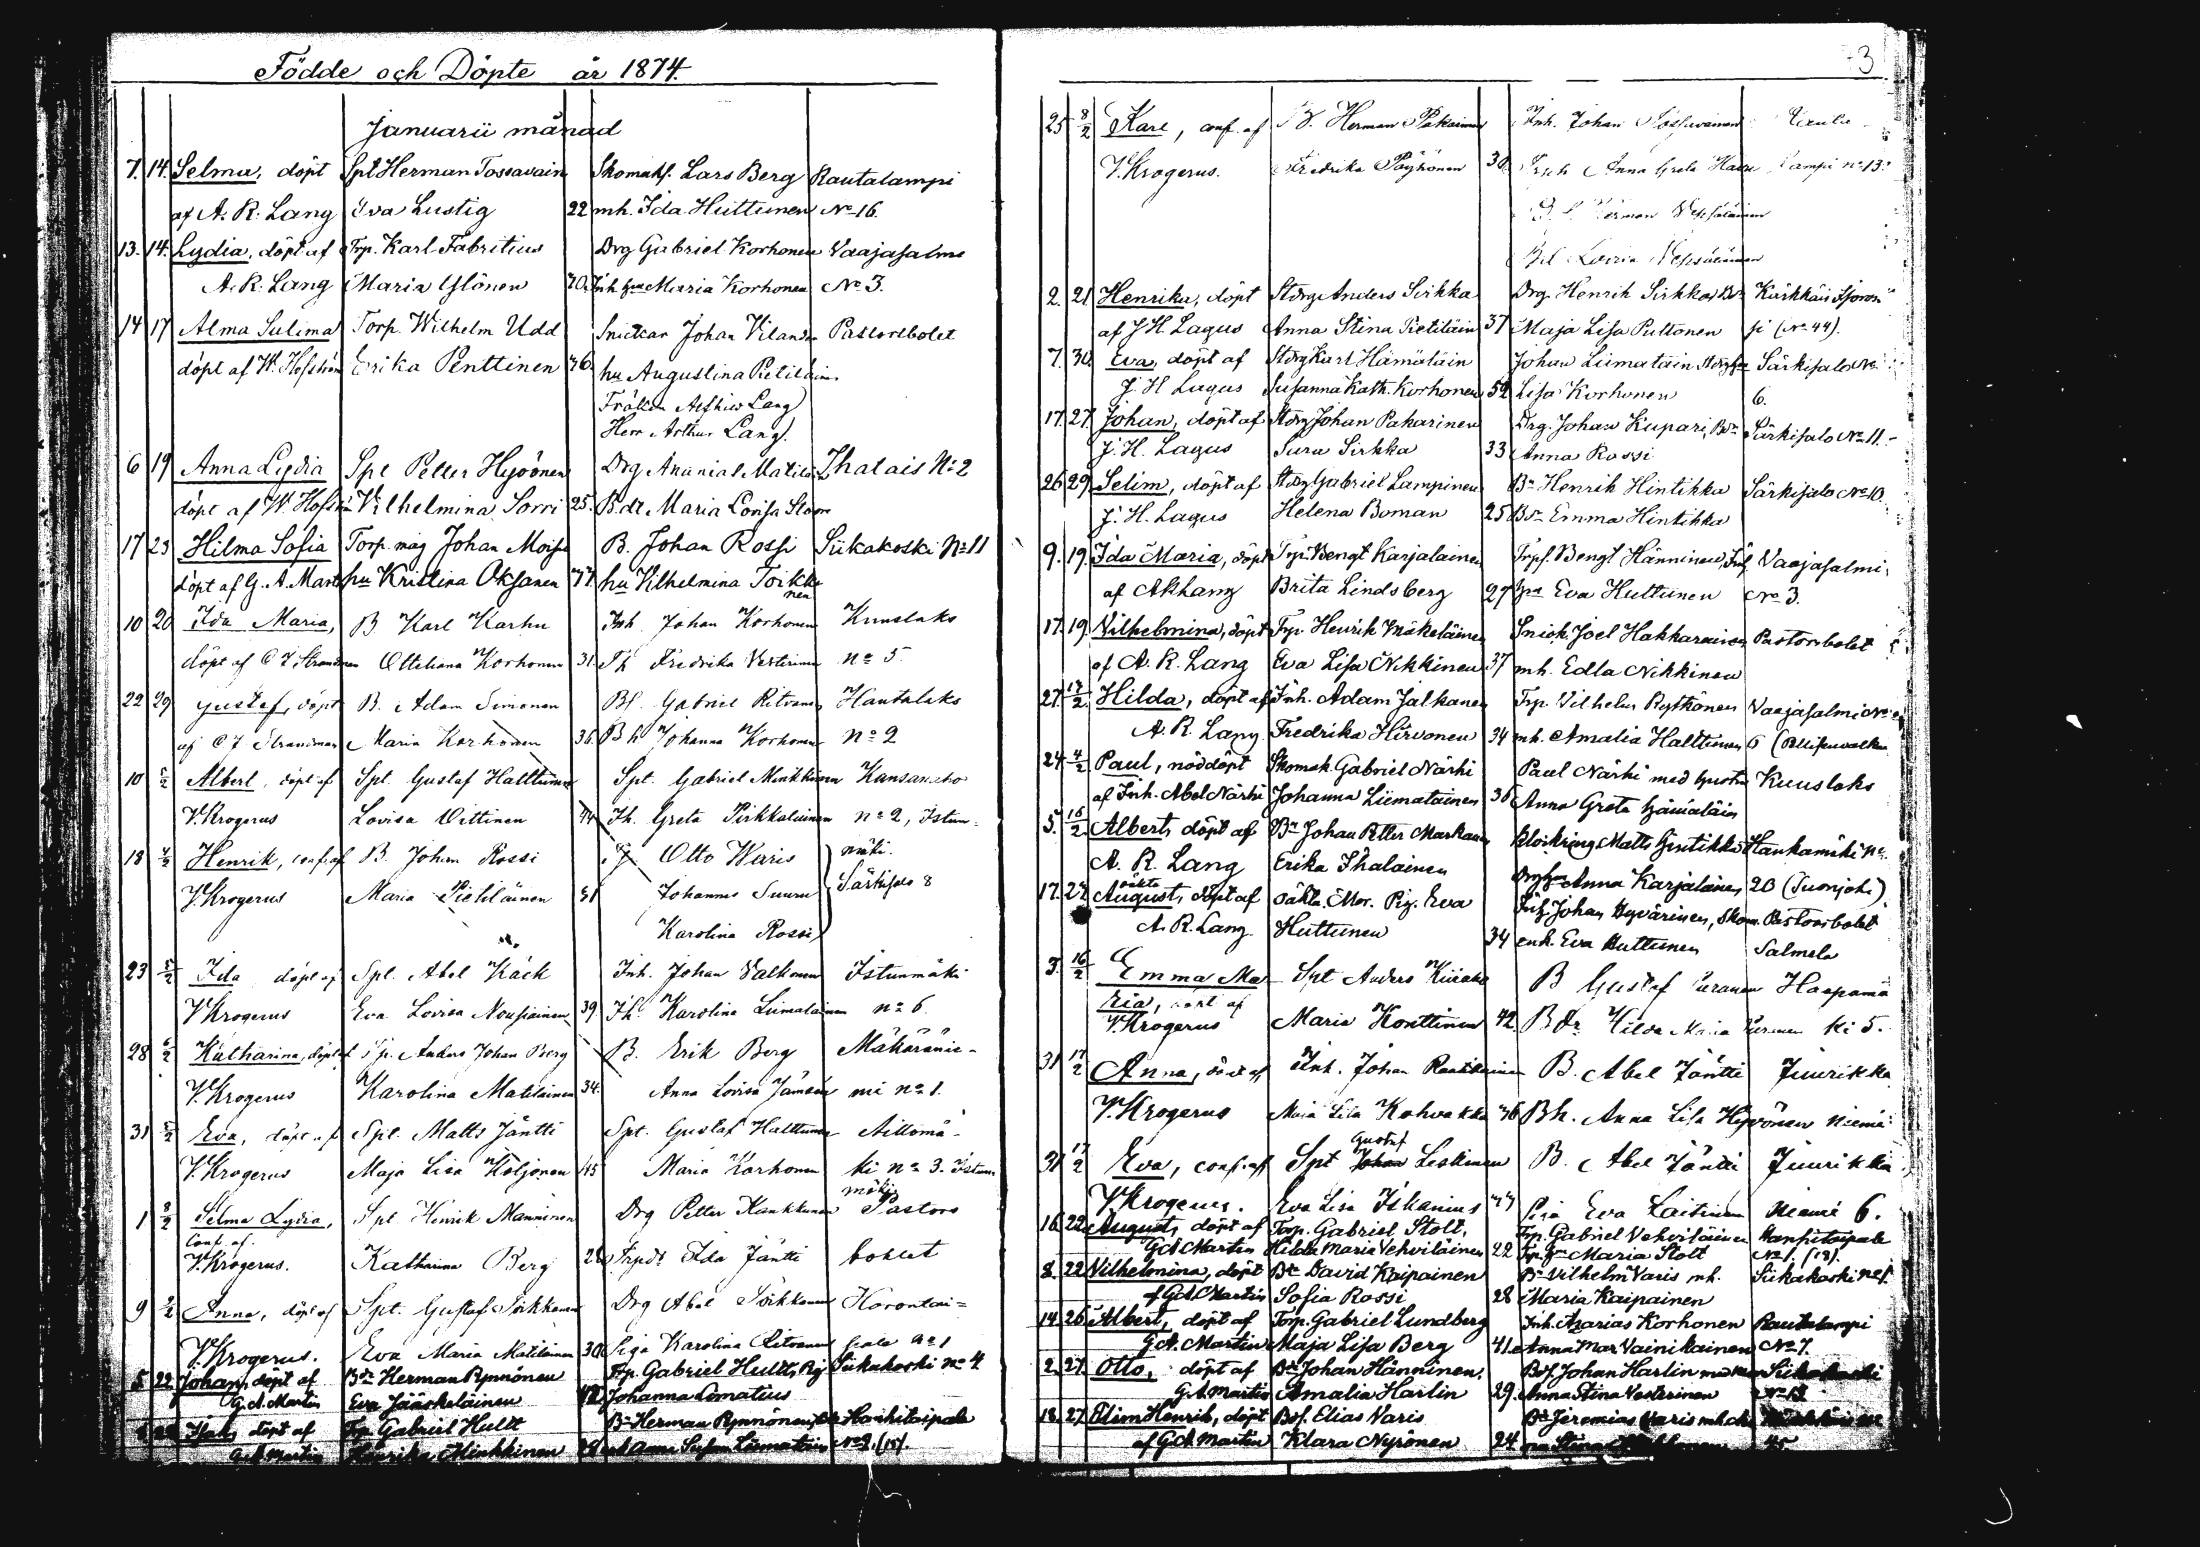 Födde och Döpte år 1874.
Januarii månad
7. 14. Selma, döpt Spl Herman Tossavain Skomaks. Lars Berg Rautalampi
af A. R. Lang Eva Lustig 22 mh. Ida Huttunen No 16.
13. 14. Lydia, döpt af Trp. Karl Fabritius Drg Gabriel Korhonen Vaajasalmi
A. R. Lang Maria Ylönen 40. Inh hru Maria Korhonen No 3.
14 17 Alma Sulima Torp. Wilhelm Udd Snickar Johan Vilander Pastorsbolet
döpt af W. Hofström Erika Penttinen 36. hu Augustina Pietiläin
Fröken Lang
Herr Arthur Lang.
6 19 Anna Lydia Spl Petter Hyvönen Drg Ananias Matilain Ihalais No 2
döpt af W. Hofström Vilhelmina Sorri 25. B.dr Maria Lovisa
17 23 Hilma Sofia Torp. mäg Johan Moisi B. Johan Rossi Siikakoski No 11
döpt af G. A. Mart hu Kristina Oksanen 44 hu Vilhelmina Toikka
nen
10 20 Ida Maria, B Karl Karhu Inh Johan Korhonen Kuuslaks
döpt af C J Strandman Ottiliana Korhonen 31. Ih Fredrika Vesterinen no 5
22 29 Gustaf, döpt B. Adam Simonen Bf. Gabriel Ritvanen Hautalaks
af C J Strandman Maria Korhonen 36. Bh Johanna Korhonen no 2
10 5/2 Albert, döpt af Spl. Gustaf Halttunen Spl. Gabriel Minkkinen Kansanaho
V. Krogerus Lovisa Vittinen 44 Ih. Greta Pirkkalainen no 2, Istun-
18 4/2 Henrik, conf. af B. Johan Rossi Otto Waris mäki.
V. Krogerus Maria Pietiläinen 31 Johannes Suuru Särkisalo 8
Karolina Rossi
23 5/2 Ida döpt af Spl. Abel Käck Inh. Johan Valkonen Istunmäki
V Krogerus Eva Lovisa Nousiainen 39. Ih. Karolina Liimatainen no 6.
28 6/2 Katharina, döpt af Sp. Anders Johan Berg B. Erik Berg Mäkäränie-
V. Krogerus Karolina Matilainen 34. Anna Lovisa Jämsén mi no 1.
31 5/2 Eva, döpt af Spl. Matts Jäntti Spl. Gustaf Halttunen Aittomä-
V. Krogerus Maja Lisa Koljonen 45 Maria Korhonen ki no 3. Istun
mäki
1 8/2 Selma Lydia, Spl Henrik Manninen Drg Petter Kaukkunen Pastors
Conf. af.
V. Krogerus. Katharina Berg 28 Trpdr Ida Jäntti bohlet
9 9/2 Anna, döpt af Spl. Gustaf Drg Abel Korontai=
V. Krogerus. Eva Maria Matilainen 30 Piga Karolina Ritvanen pale no 1
5 22 Johan, döpt af Bdr Herman Rynnönen Trp. Gabriel Hultt, Pig Siikakoski No 4
G. A. Martin Eva Jääskeläinen 42 Johanna Domatius
22 döpt af Trp Gabriel Hultt Bn Herman Rynnönen Hanhitaipale
G. A. Martin Minkkinen Liimatain No 1. (15).
73
25 8/2 Karl, conf. af B. Herman Pakarinen Inh. Johan Tossavainen Rauta-
V. Krogerus. Fredrika Pöyhönen 30 Anna Greta lampi no 13.
Herman Vepsäläinen
Lovisa Vepsäläinen
2. 21 Henrika, döpt Stdrg Anders Sirkka Drg. Henrik Sirkka, Bdr Kärkkäis
af J H. Lagus Anna Stina Pietiläin 37 Maja Lisa Puttonen (No 44).
7. 30. Eva, döpt af Stdrg Karl Hämäläin Johan Liimatain Särkisalo No
J. H Lagus Susanna Kath. Korhonen 32 Lisa Korhonen 6.
17. 27. Johan, döpt af Stdrg Johan Pakarinen Drg. Johan Kupari, Bdr Särkisalo No 11.
J. H. Lagus Sura Sirkka 33 Anna Rossi
26 29 Selim, döpt af Stdrg Gabriel Lampinen Bn Henrik Hintikka Särkisalo No 10.
J. H. Lagus Helena Boman 25 Bdr Emma Hintikka
9. 19. Ida Maria, döpt Trp. Bengt Karjalainen Trps. Bengt Hänninen, Inh Vaajasalmi
af A R Lang Brita Lindsberg 27 hru Eva Huttunen No 3.
17. 19. Vilhelmina, döpt Trp. Henrik Mäkeläinen Snick. Joel Hakkarainen Pastorsbolet
af A. R. Lang Eva Lisa Nikkinen 37 mh. Edla Nikkinen
27. 17/2 Hilda, döpt af Inh. Adam Jalkanen Trp. Vilhelm Rytkönen Vaajasalmi No
A. R. Lang Fredrika Hirvonen 34 mh. Amalia Halttunen 6
24 4/2 Paul, nöddöpt Skomak. Gabriel Närhi Paul Närhi med hustru Kuuslaks
af Inh. Abel Närhi Johanna Liimatainen 36 Anna Greta Hämäläin
5. 15/2 Albert, döpt af Bn Johan Petter Markanen Klockring. Matts Hintikka Hankamäki No
A. R. Lang Erika Ihalainen Drghru Anna Karjalainen 20 (Suonjoki)
17. 27. oäkta August, döpt af oäkta. Mor. Pig. Eva Inh. Johan Hyvärinen, Skom. Pastorsbolet
A. R. Lang Huttunen 34 enk. Eva Huttunen Salmela
3. 16/2 Emma Ma- Spl Anders Kiiski B Gustaf Puranen Haapamä
ria, döpt af
V. Krogerus Maria Konttinen 42. Bdr Hilda Maria Puranen ki 5.
31 17/2 Anna, döpt af Inh. Johan Rautiainen B. Abel Jäntti Juurikka
V. Krogerus Maia Lisa Kohvakka 46 Bh. Anna Lisa Hyvönen niemi
31 17/2 Eva, conf. af Spl Gustaf Johan Leskinen B. Abel Jäntti Juurikka
V Krogerus. Eva Lisa Ikäheimo 44 Piga Eva Laitinen niemi 6.
16. 22 August, döpt af Torp. Gabriel Stolt. Trp. Gabriel Vehviläinen Hanhitaipale
G A Martin Hilda Maria Vehviläinen 22 Trp. hru Maria Stolt No 1. (18).
8. 22 Vilhelmina, döpt Bdr David Kaipainen Bn Vilhelm Varis mh. Siikakoski No 1.
af G A Martin Sofia Rossi 28 Maria Kaipainen
14 26 Albert, döpt af Torp. Gabriel Lundberg Inh. Asarias Korhonen Rautalampi
G A. Martin Maja Lisa Berg 41. Anna Mar Vainikainen No 7.
2. 27. Otto, döpt af Bdr Johan Hänninen. Bof. Johan Harlin med Siikakoski
G. A. Martin Amalia Harlin 29. Anna Stina Vesterinen No 13
18. 27. Elim Henrik, döpt Bof. Elias Varis Bdr Jeremias Varis mh.
af G A. Martin Klara Nyrönen 24. 45